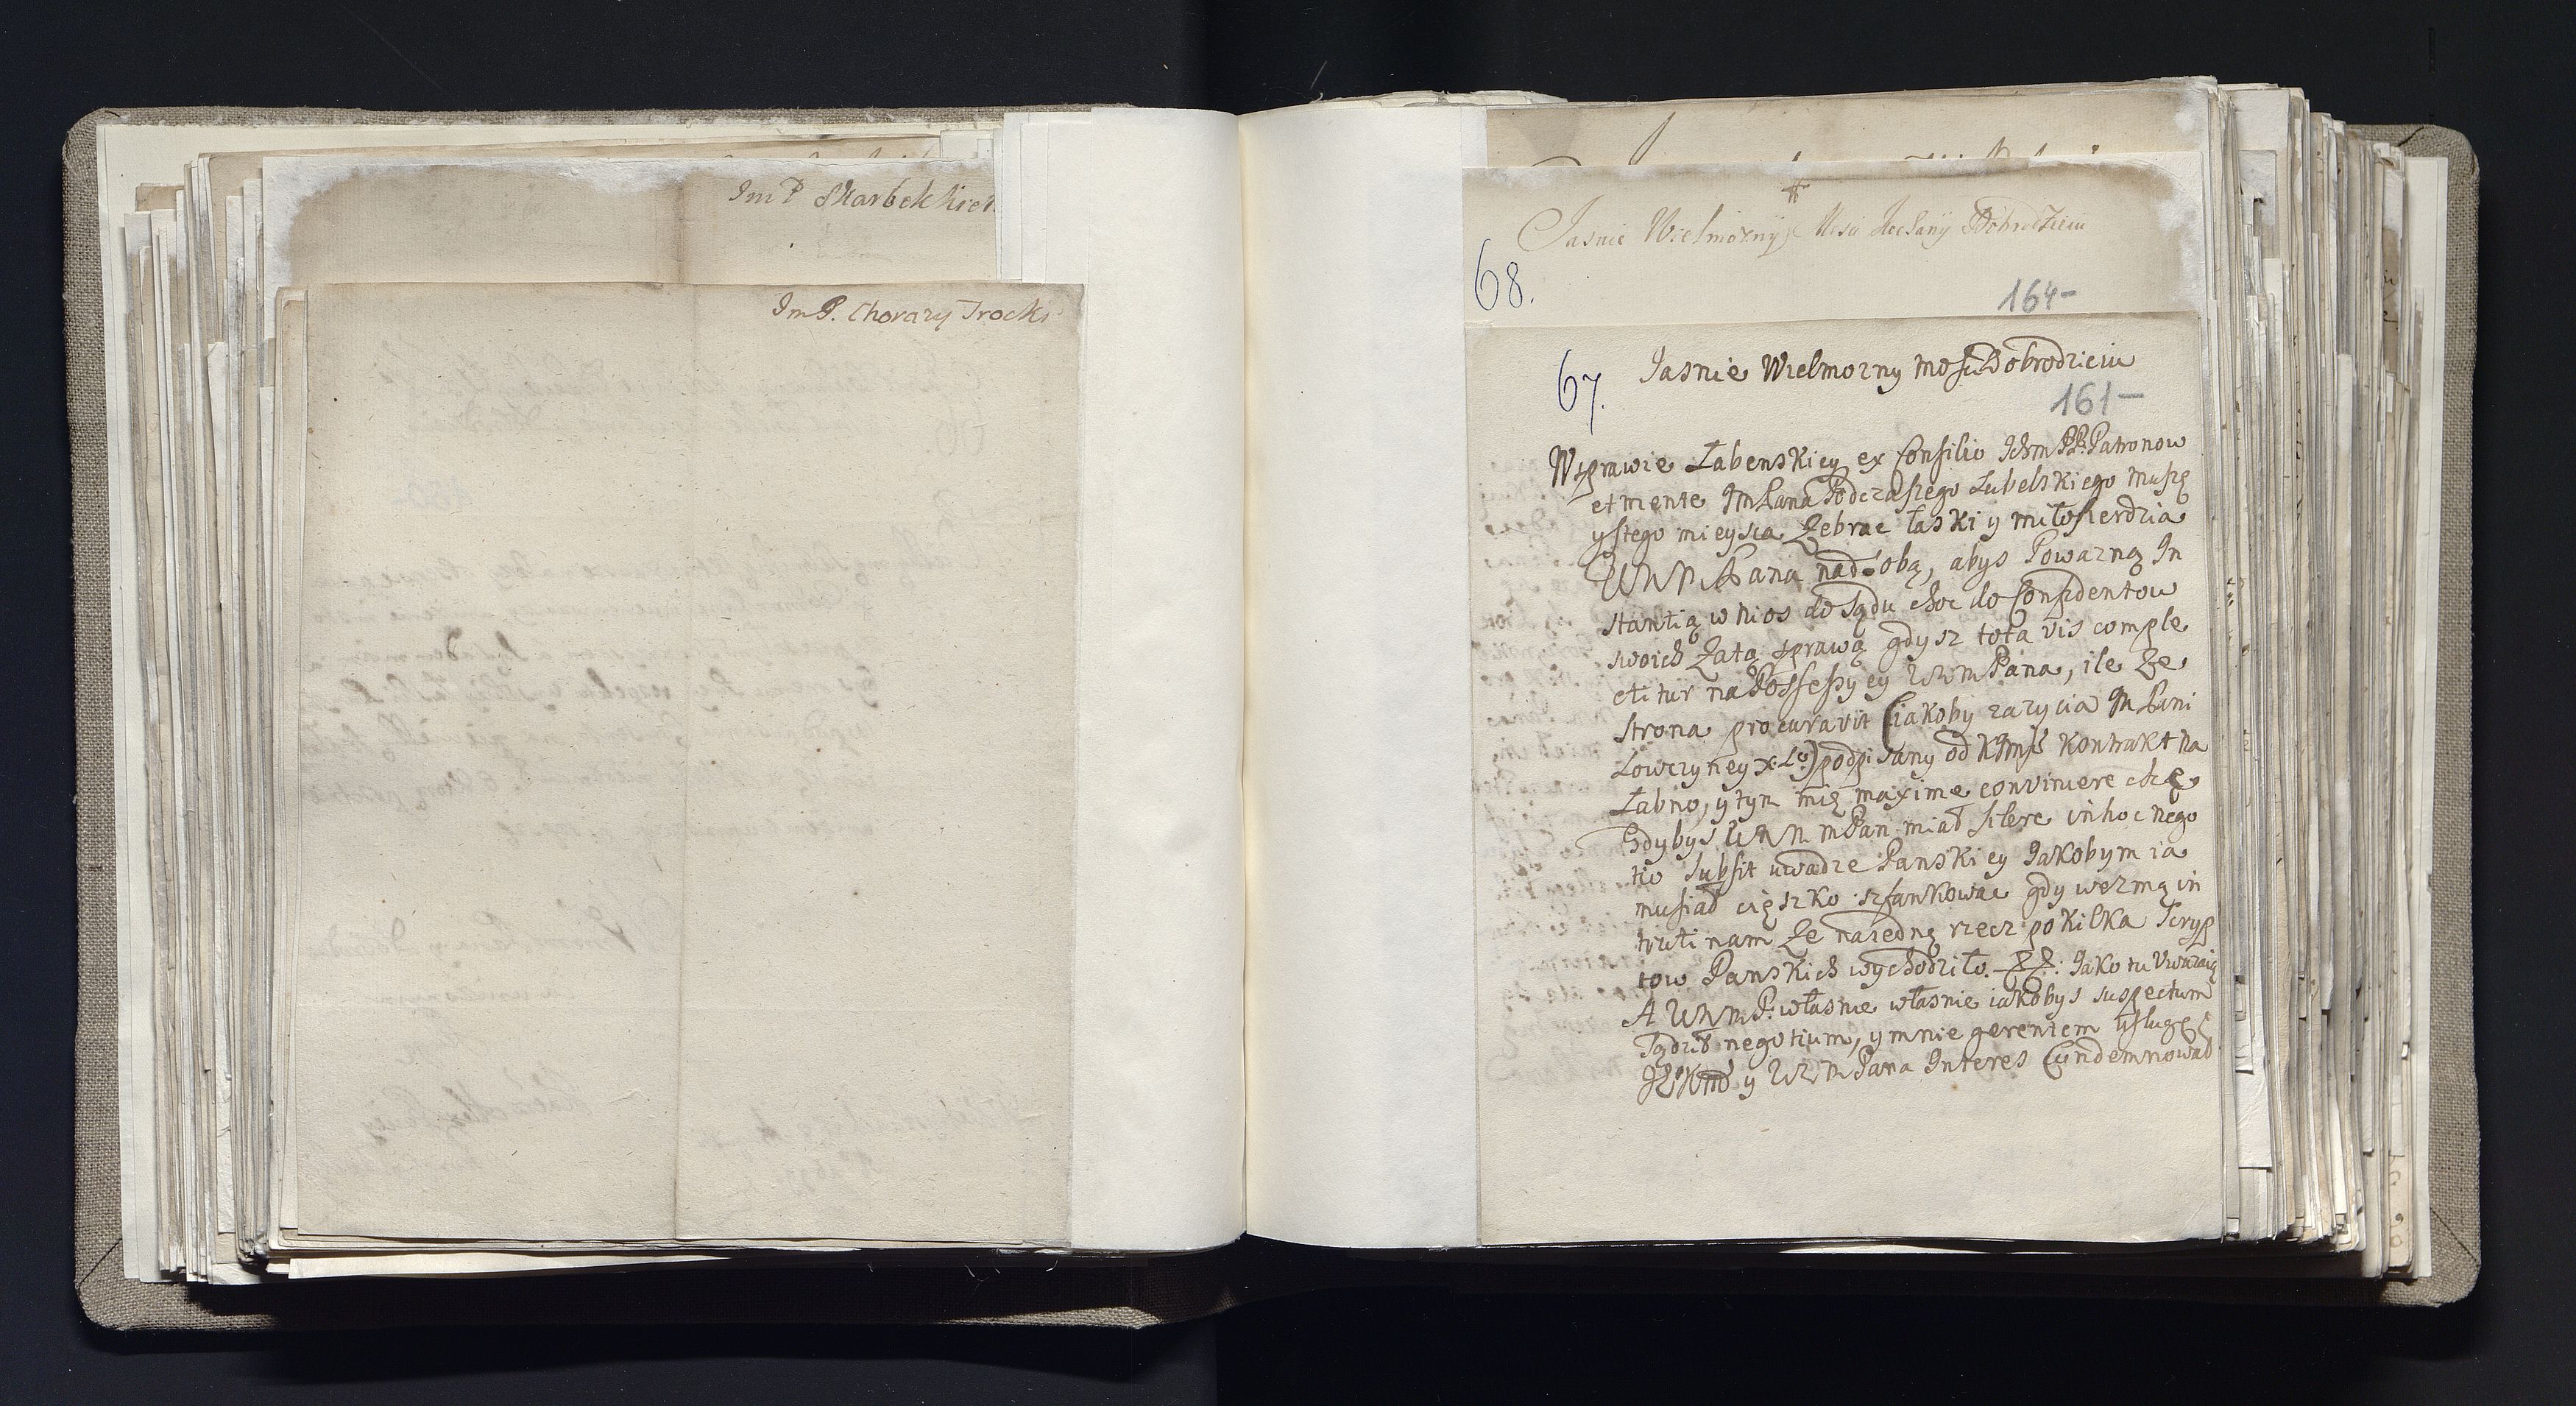 ImP Skarbek Kiet
ImP. Chorązy Trocki
Jasnie Wielmożnÿ Msci Dobrodzieiu
68.
164-
67. Jasnie Wielmozny Mosci Dobrodzieiu
161-
W sprawie Łabenskiey ex Consilio IchmPP. Patronow
et mente ImPana Podczaszego Lubelskiego muszę
y stego mieysca Zebrac łaski y miłosierdzia
WMM Pana nad sobą, abys Powazną In
stantią wnios do sądu choc do Confidentow
swoich Za tą sprawą gdysz tota vis comple
ctitur na Possessyey WMmPana, ile Ze
strona procuravit (iakoby zazycia ImPani
Łowczyney x. Lo) podpisany od KImsci Kontrakt na
Łabno, y tym mię maxime convincere chcę
Gdybys WMMmPan miał silere in hoc nego
tio subsit uwadze Panskiey Jakobym ia
musiał cięszko szfankowac gdy wezmą in
trutinam Ze na jedną rzecz po kilka Scryp
tow Panskich wychodziło. Jako tu Uwazaią
A WMmP. własnie własnie iakobys suspectum
Sądził negotium, y mnie gerentem usługę
y WMmPana Interes Condemnował